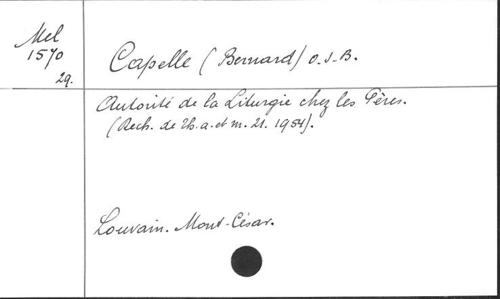 Mel
1570
29.
Capelle (Bernard) O.S.B.
Autorité de la Liturgie chez les Pères.
(Rech. de Th. a. et m. 21. 1954).
Louvain. Mont-César.